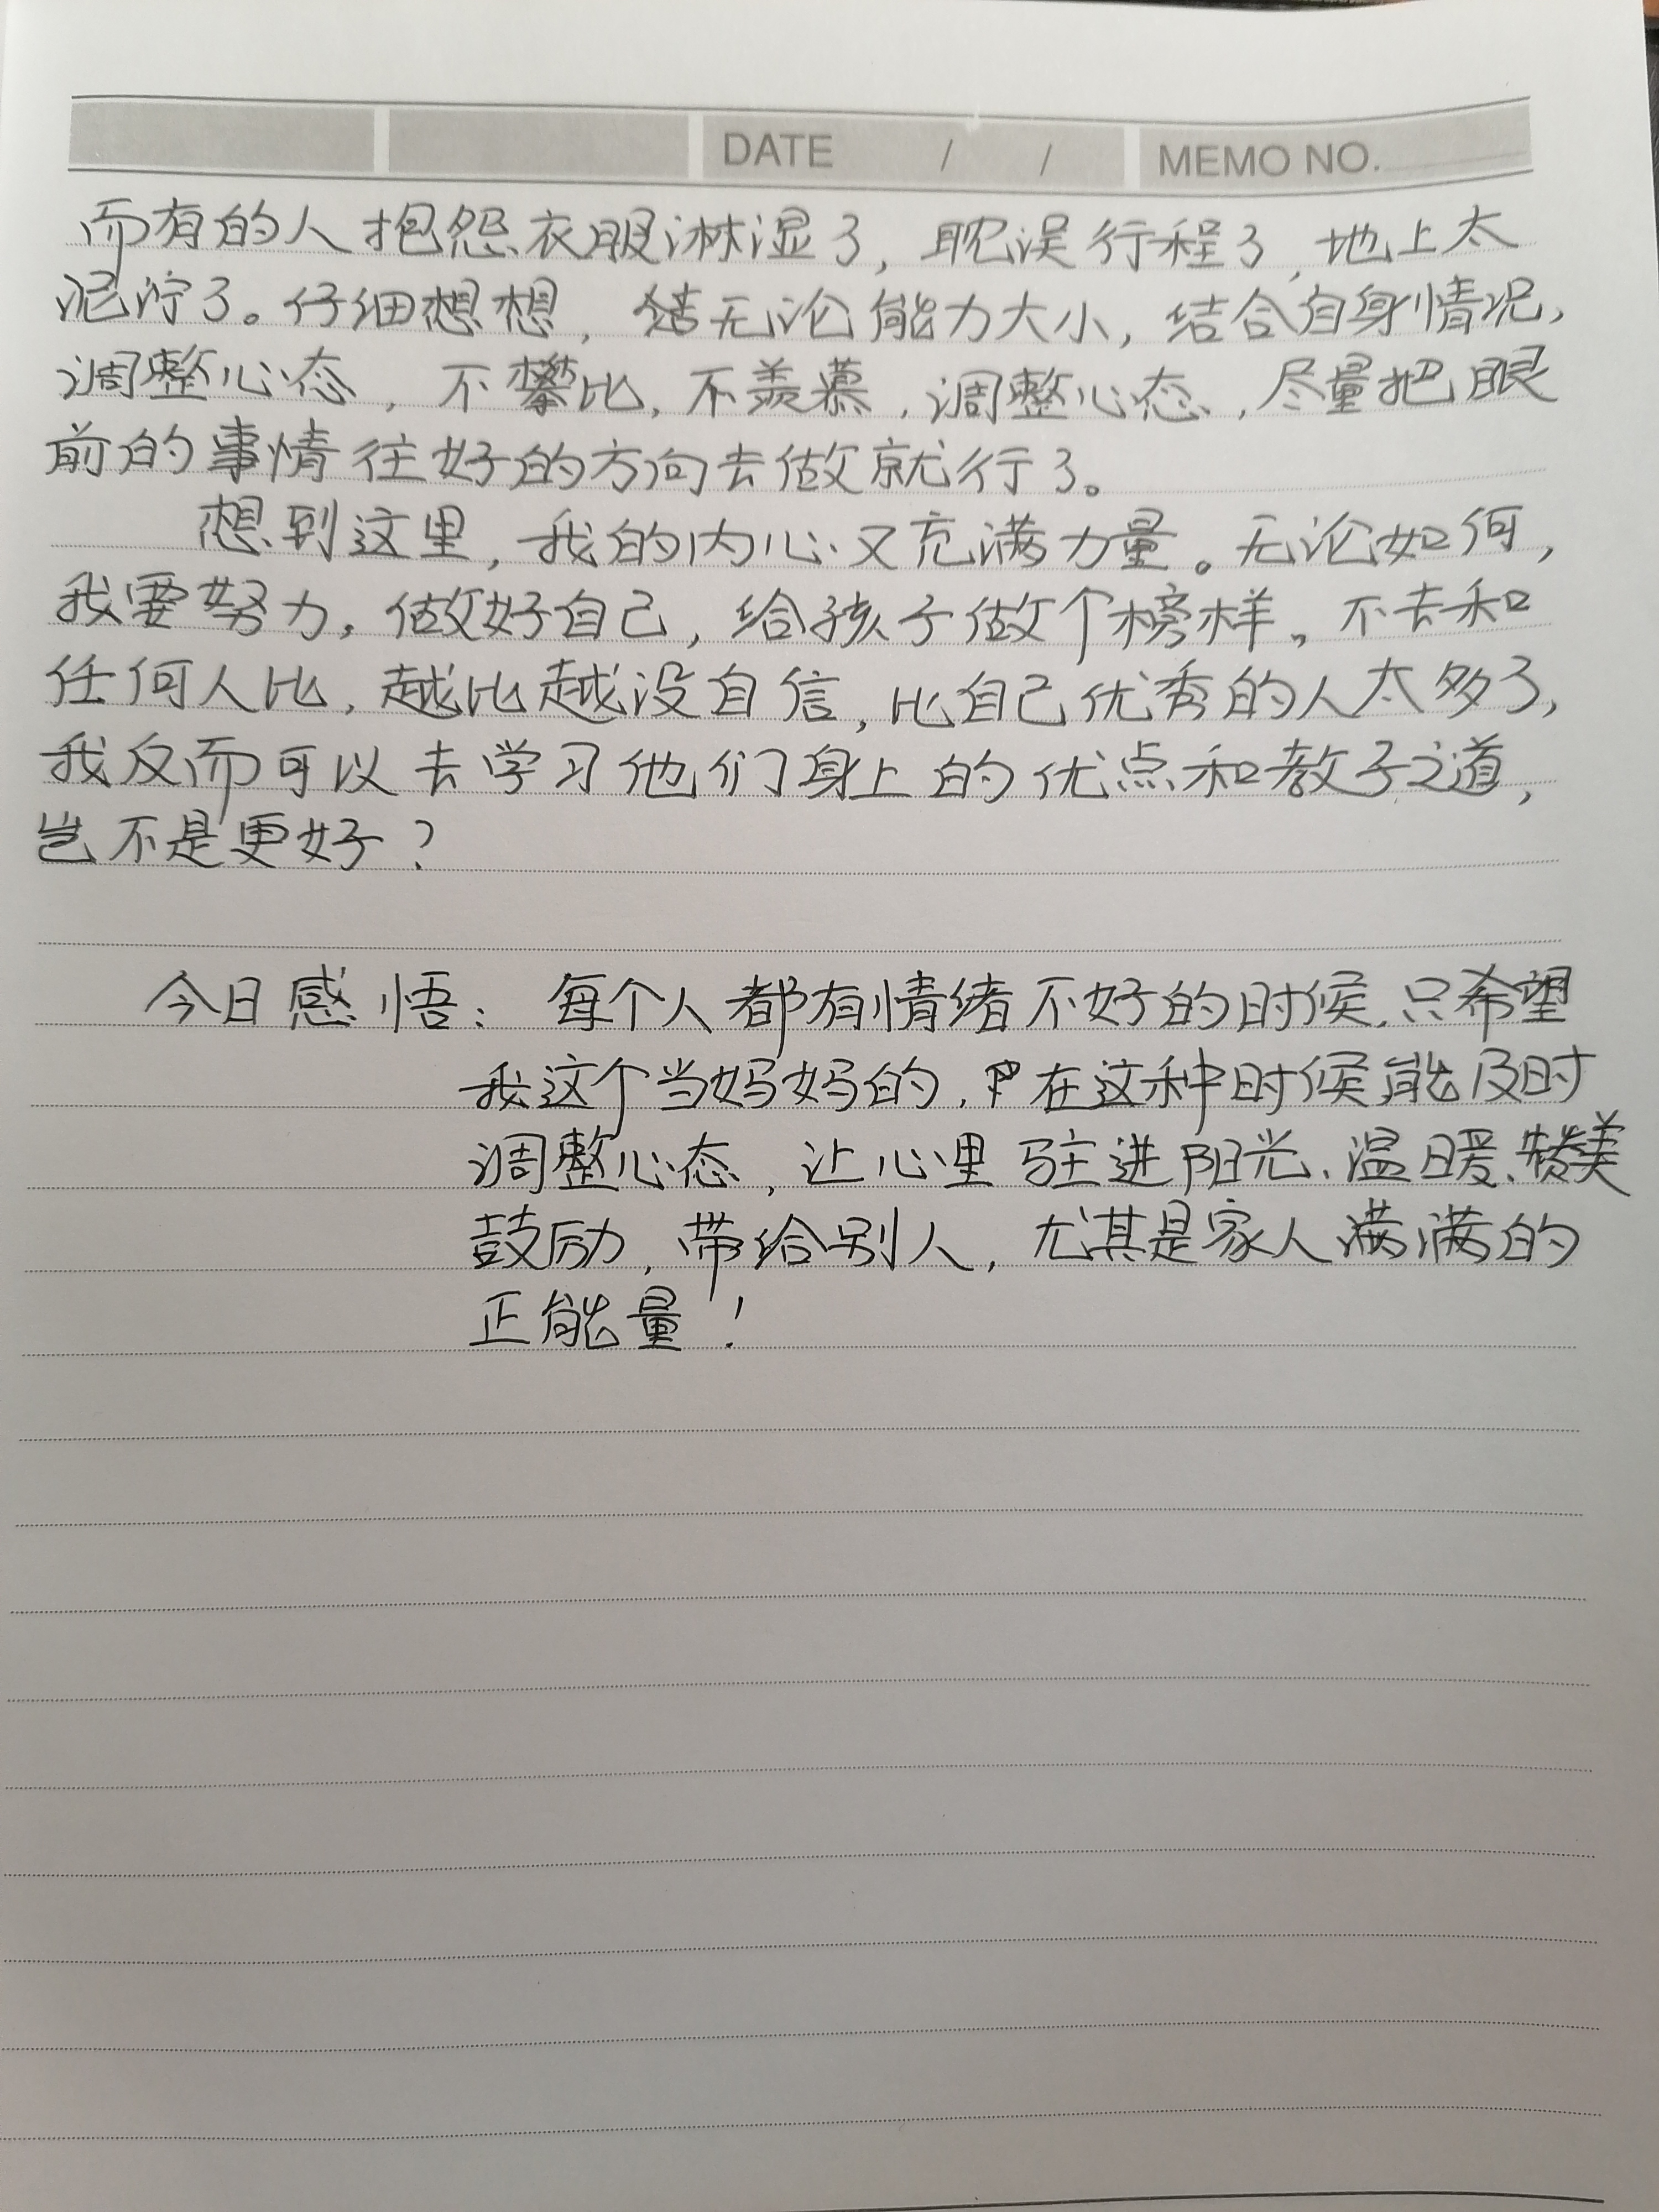 DATE / / MEMO NO.
而有的人抱怨衣服淋湿了，耽误行程了，地上太
泥泞了。仔细想想，无论能力大小，结合自身情况，
调整心态，不攀比，不羡慕，调整心态，尽量把眼
前的事情往好的方向去做就行了。
想到这里，我的内心又充满力量。无论如何，
我要努力，做好自己，给孩子做个榜样。不去和
任何人比，越比越没自信，比自己优秀的人太多了，
我反而可以去学习他们身上的优点和教子之道，
岂不是更好？
今日感悟：每个人都有情绪不好的时候，只希望
我这个当妈妈的，在这种时候能及时
调整心态，让心里驻进阳光、温暖、赞美
鼓励，带给别人，尤其是家人满满的
正能量！